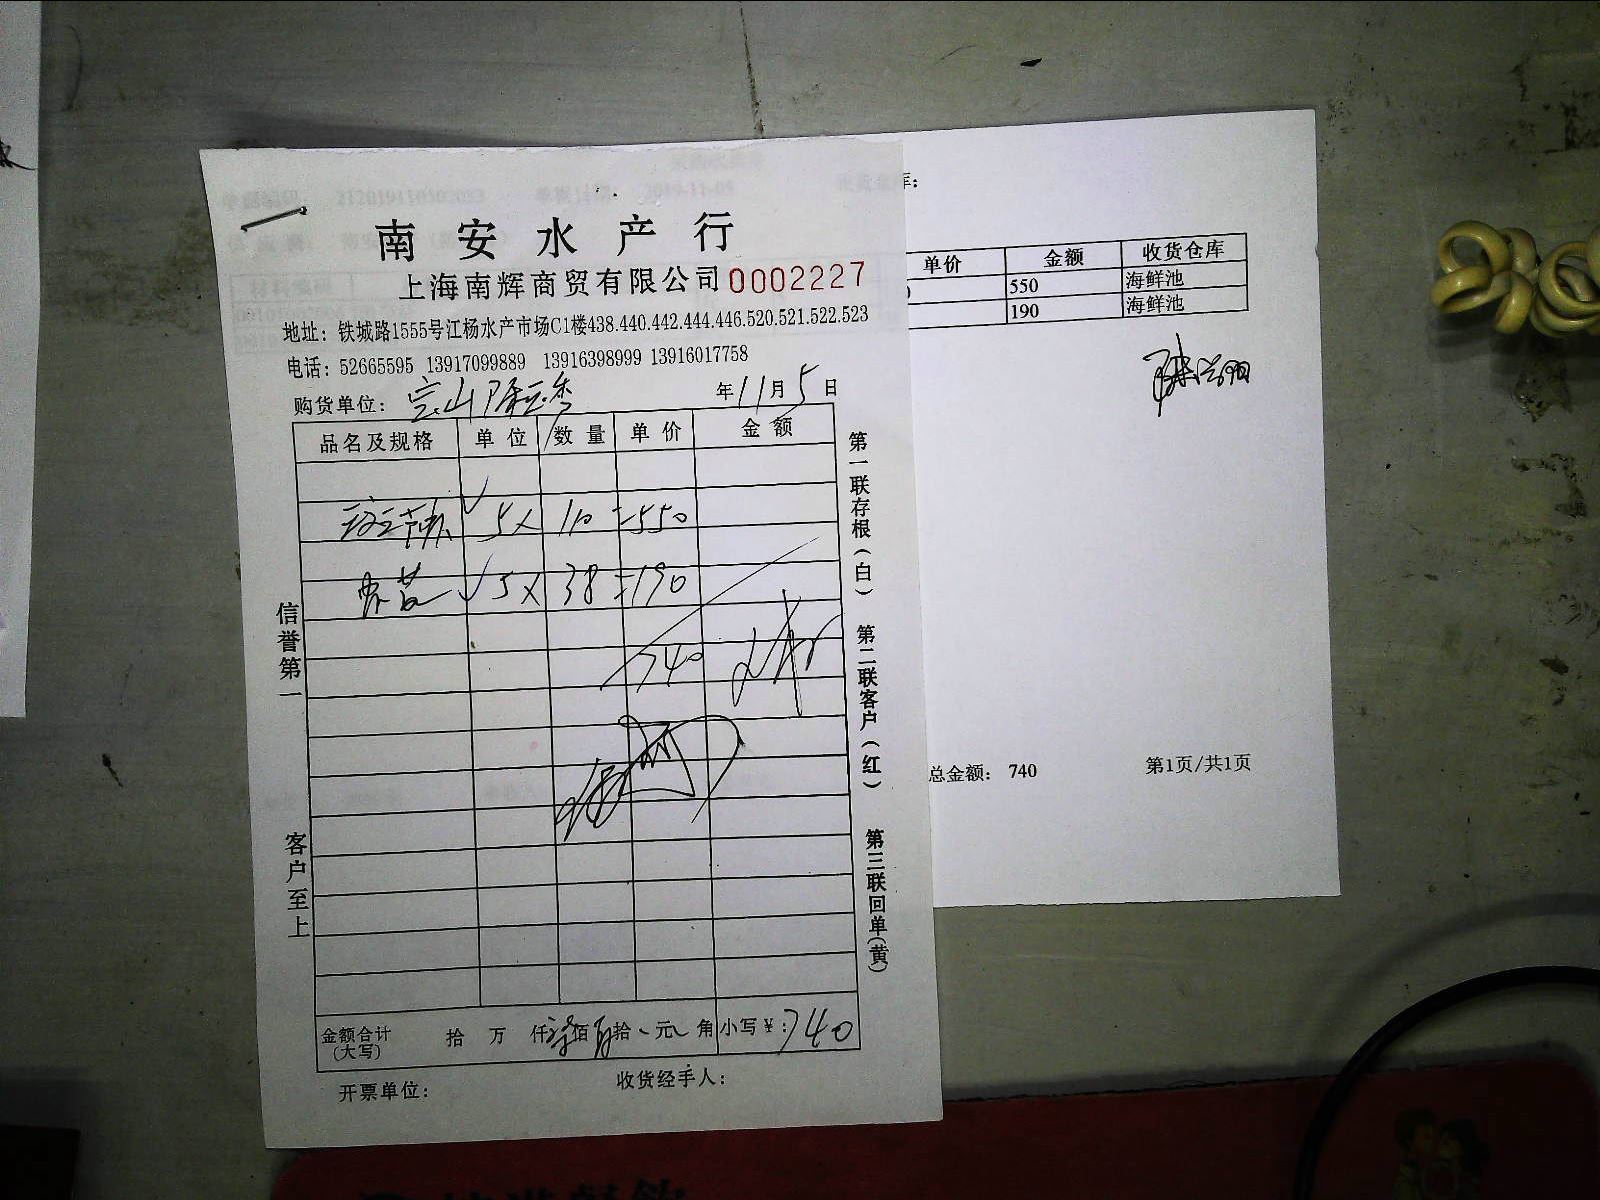 南安水产行
上海南辉商贸有限公司 0002227
地址：铁城路1555号江杨水产市场C1楼438.440.442.444.446.520.521.522.523
电话：52665595 13917099889 13916398999 13916017758
购货单位：宝山 年11月5日
品名及规格 单位 数量 单价 金额
5× 110 =550
5× 38 =190
740
金额合计(大写) 拾 万 仟柒佰肆拾 元 角 小写￥：740
开票单位： 收货经手人：
信誉第一 客户至上
第一联存根(白) 第二联客户(红) 第三联回单(黄)
库：
单价 金额 收货仓库
550 海鲜池
190 海鲜池
总金额： 740 第1页/共1页